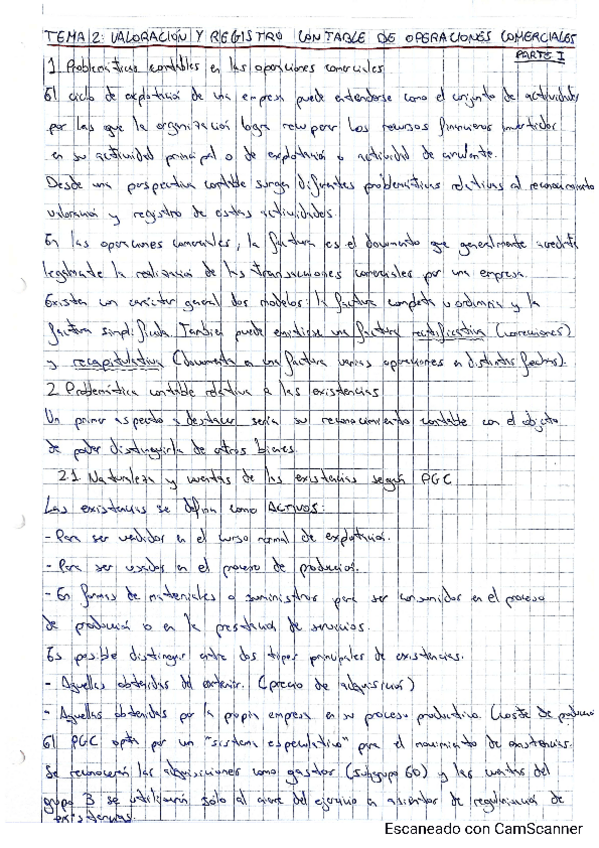 TEMA 2: VALORACIÓN Y REGISTRO CONTABLE DE OPERACIONES COMERCIALES
PARTE I
1. Problemáticas contables en las operaciones comerciales
El ciclo de explotación de una empresa puede entenderse como el conjunto de actividades
por las que la organización logra recuperar los recursos financieros invertidos
en su actividad principal o de explotación o actividad de circulante.
Desde una perspectiva contable surgen diferentes problemáticas relativas al reconocimiento
valoración y registro de estas actividades.
En las operaciones comerciales, la factura es el documento que generalmente acredita
legalmente la realización de las transacciones comerciales por una empresa.
Existen con carácter general dos modelos: la factura completa u ordinaria y la
factura simplificada. También puede emitirse una factura rectificativa (correcciones)
y recapitulativa (documenta en una factura varias operaciones en distintas fechas).
2. Problemática contable relativa a las existencias
Un primer aspecto a destacar sería su reconocimiento contable con el objeto
de poder distinguirla de otros bienes.
2.1 Naturaleza y cuentas de las existencias según PGC
Las existencias se definen como ACTIVOS:
- Para ser vendidos en el curso normal de explotación.
- Para ser usados en el proceso de producción.
- En formas de materiales o suministros para ser consumidos en el proceso
de producción o en la prestación de servicios.
Es posible distinguir entre dos tipos principales de existencias.
- Aquellas obtenidas del exterior. (precio de adquisición)
- Aquellas obtenidas por la propia empresa en su proceso productivo. (coste de producción
El PGC opta por un "sistema especulativo" para el movimiento de existencias.
Se reconocerán las adquisiciones como gastos (subgrupo 60) y las cuentas del
grupo 3 se utilizarán sólo al cierre del ejercicio en asientos de regularización de
existencias.
Escaneado con CamScanner